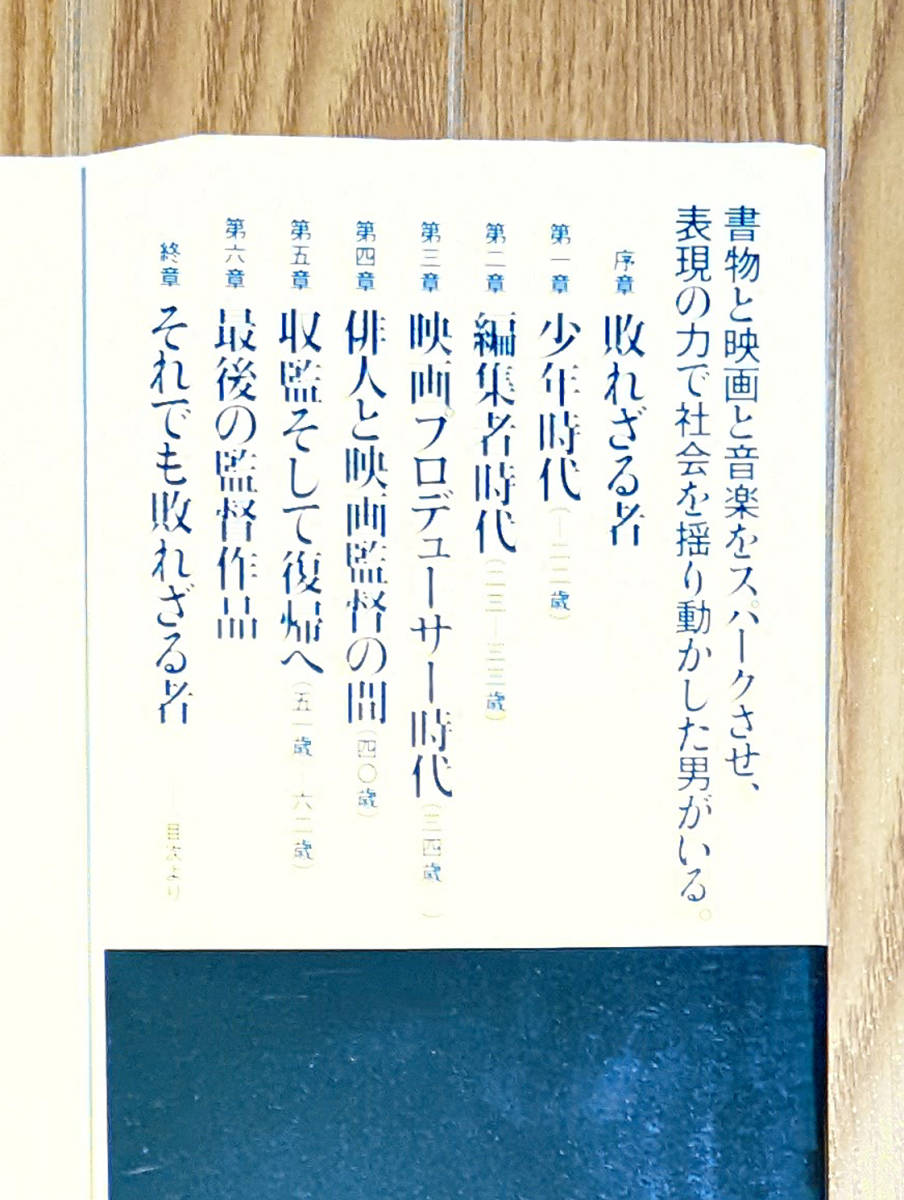 書物と映画と音楽をスパークさせ、
表現の力で社会を揺り動かした男がいる。
序章 敗れざる者
第一章 少年時代(―二二歳)
第二章 編集者時代(二三―三三歳)
第三章 映画プロデューサー時代(三四歳―)
第四章 俳人と映画監督の間(四〇歳)
第五章 収監そして復帰へ(五一歳―六二歳)
第六章 最後の監督作品
終章 それでも敗れざる者
―目次より